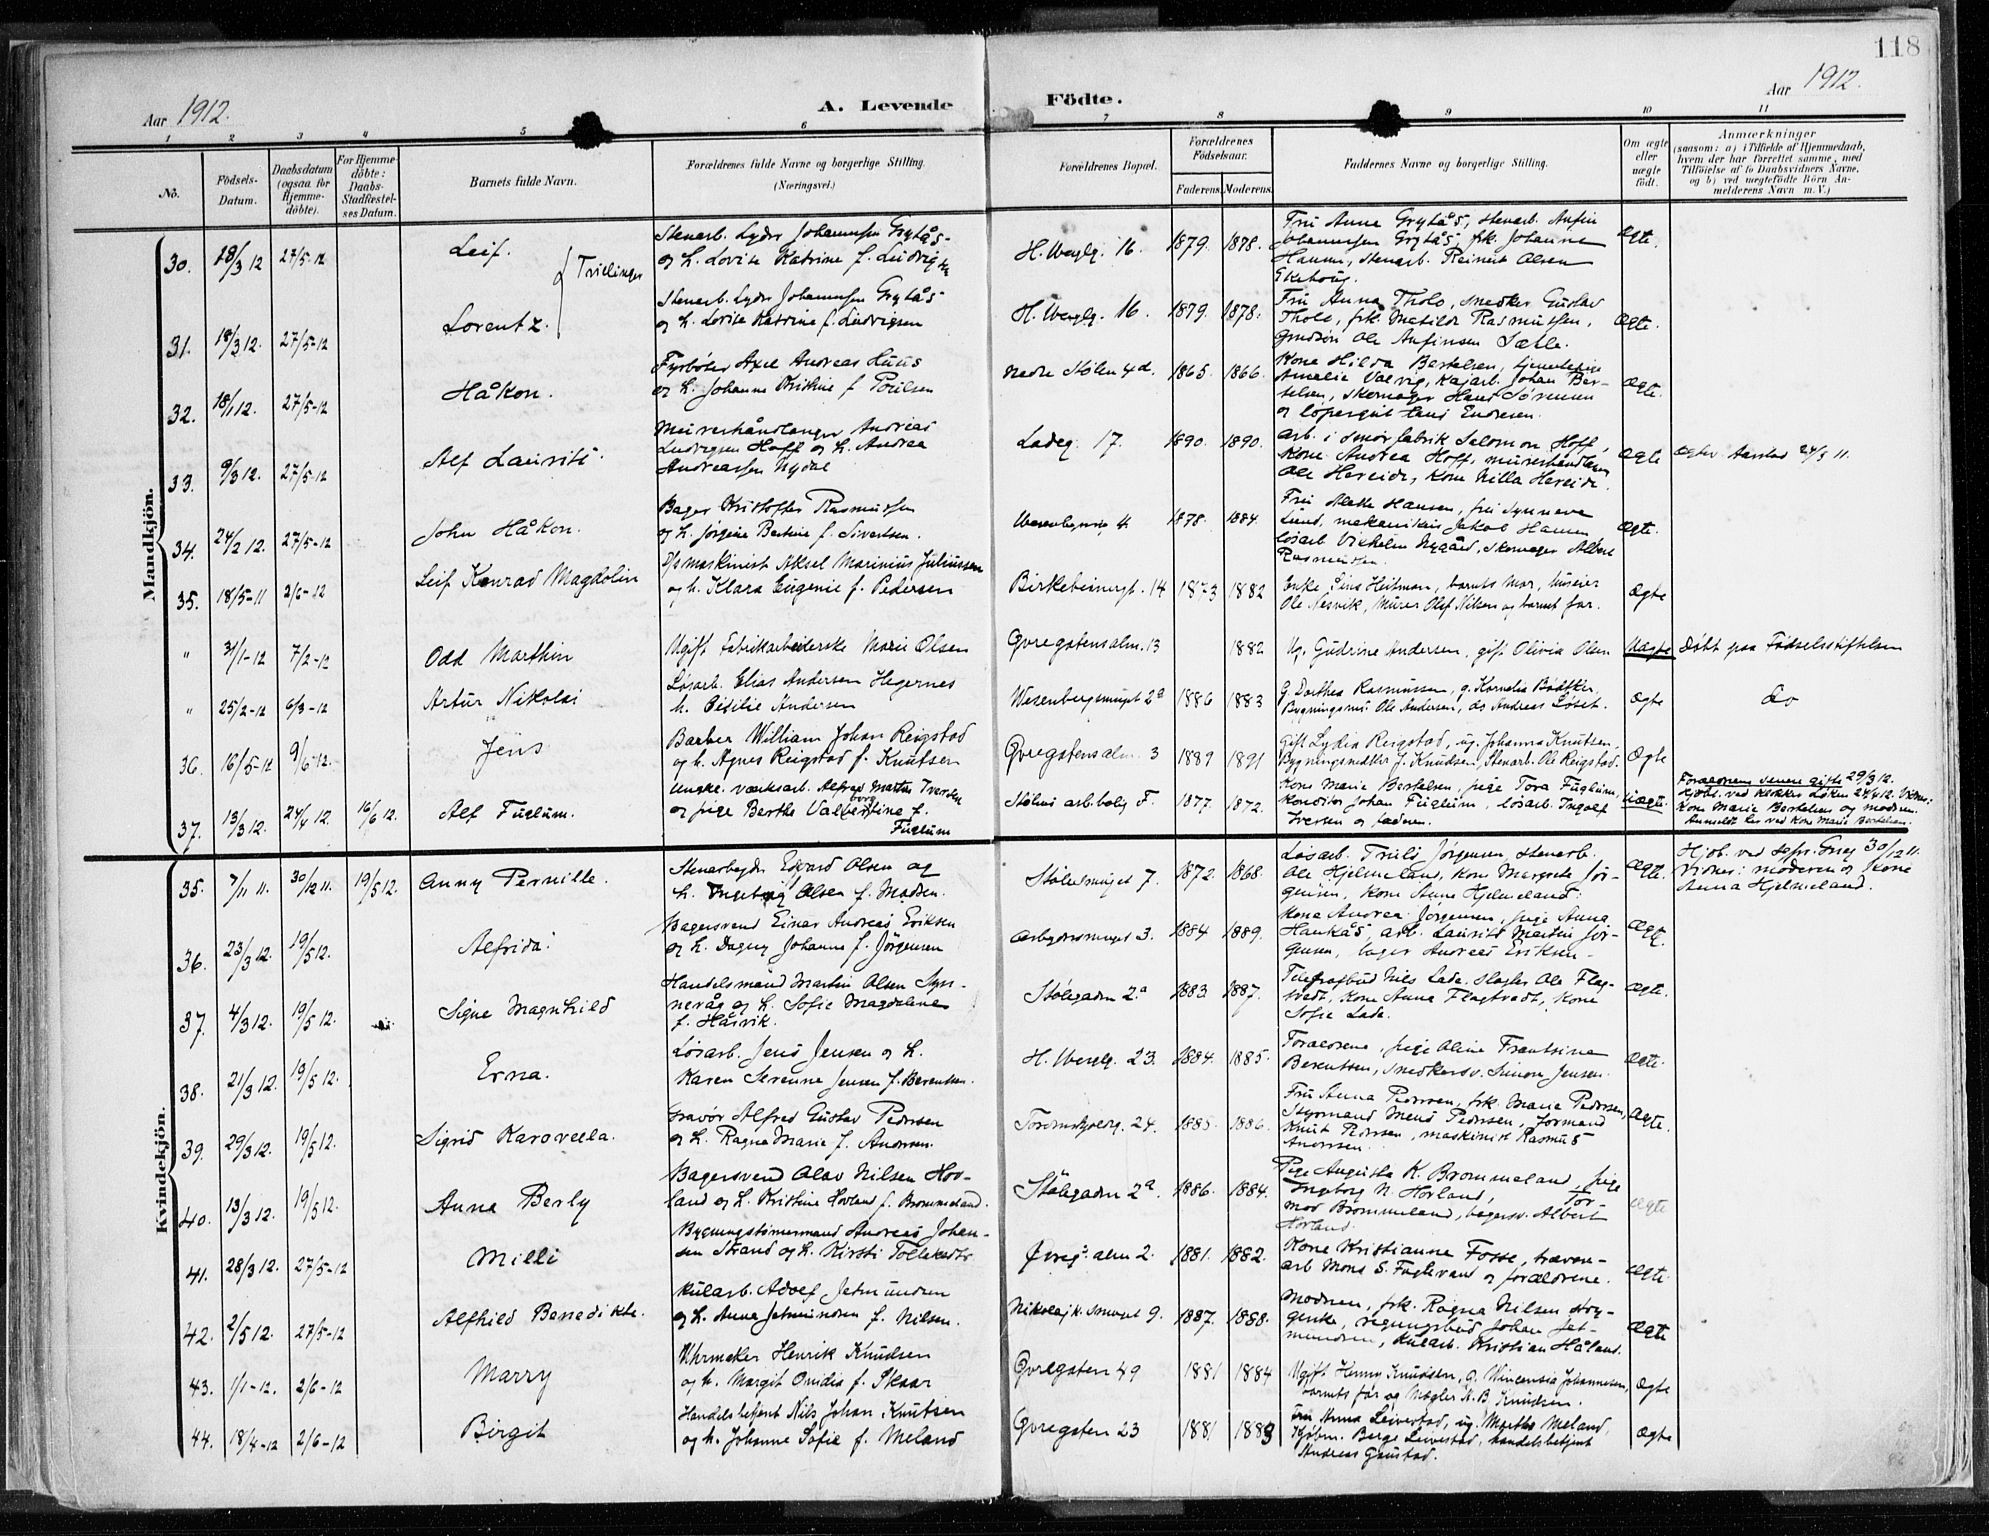 118
Aar 1912.
A. Levende
Födte.
Aar 1912.
1 2 3 4 5 6 7 8 9 10 11
No.
Fødsels-
Datum.
Daabsdatum
(ogsaa for
Hjemme-
döbte).
For Hjemme-
döbte:
Daabs-
Stadfestel-
ses Datum.
Barnets fulde Navn.
Forældrenes fulde Navne og borgerlige Stilling.
(Næringsvei.)
Forældrenes Bopæl.
Forældrenes
Födselsaar.
Faderens. Moderens.
Faddernes Navne og borgerlige Stilling.
Om ægte
eller
uægte
födt.
Anmærkninger
(saasom: a) i Tilfælde af Hjemmedaab,
hvem der har forrettet samme, med
Tilföielse af to Daabsvidners Navne,
og b) ved uægtefödte Börn An-
melderens Navn m. V.)
Mandkjön.
30. 18/3 12 27/5-12 Leif. { Trillinger
Stenarb. Lyder Johannessen Grytås
og h. Lovise Katrine f. Ludvigsen
H. Wergelg. 16. 1879. 1878.
Fru Anna Grytås, stenarb. Anfin
Johannessen Grytås, frk. Johanne
Hannu, stenarb. Reinert Olsen
Ekehoug.
Ægte.
31. 18/3 12. 27/5-12 Lorentz.
Stenarb. Lyder Johannessen Grytås
og h. Lovise Katrine f. Ludvigsen
H. Wergelg. 16. 1879. 1878.
Fru Anna Thole, snedker Gustav
Thole, frk. Matilde Rasmussen,
Ole Anfinsen Sætle.
Ægte.
32. 18/1 12. 27/5-12 Håkon.
Fyrbøter Axel Andreas Huus
og h. Johanne Kristine f. Poulsen
Nedre Stølen 4d. 1865. 1866.
Kone Hilda Bertelsen, tjenestepige
Amalie Valvig, kajarb. Johan Ber-
telsen, skomager Hans Sørensen
og løpergut Hans Endresen.
Ægte.
33. 9/3 12. 27/5-12 Alf Laurits.
Murerhåndlanger Andreas
Ludvigsen Hoff og h. Andrea
Andreassen Nydal
Ladeg. 17. 1890. 1890.
arb. i smørfabrik Salomon Hoff,
kone Andrea Hoff, murerhåndlanger
Ole Hereide, kone Nilla Hereide.
Ægte
Ægtev. Aarstad 24/5 11.
34. 24/2 12. 27/5-12 John Håkon.
Bager Kristoffer Rasmussen
og h. Jørgine Bertine f. Sivertsen.
Wesenbergsmug 4. 1878. 1884.
Fru Mette Hansen, fru Synneve
Lund, mekaniker Jakob Hansen
løsarb. Vilhelm Nygård, skomager Albert
Rasmussen.
Ægte.
35. 18/5-11 2/6-12 Leif Konrad Magdolin
D/s maskinist Aksel Marinius Juliussen
og h. Klara Eugenie f. Pedersen
Birkebeinergt. 14 1873 1882
Enke Lina Heitman, barnets mor, huseier
Ole Nesvik, Murer Olaf Nilsen og barnets far.
Ægte
" 31/1-12 7/2-12 Odd Marthin
Ugift Fabrikarbeiderske Marie Olsen
Øvregatensalm. 13 1882
Ug. Gudrine Andersen, gift Olivia Olsen
Uægte
Døbt paa Fødselsstiftelsen
" 25/2-12 6/3-12 Artur Nikolai
Løsarb. Elias Andersen Hegernes
h. Cisilie Andersen
Wesenbergsmuget 2a 1886 1883
G. Dorthea Rasmussen, g. Kornelia Bødtker,
Bygningsm. Ole Andersen, do Andreas Løset.
Ægte
do
36. 16/5-12 9/6-12. Jens
Barber William Johan Reigstad
og h. Agnes Reigstad f. Knutsen
Øvregatensalm. 3 1889 1891
Gift Lydia Reigstad, ug. Johanna Knutsen,
Bygningssnedker J. Knudsen, Stenarb. Ole Reigstad.
Ægte
37. 13/3 12. 24/4 12. 16/6 12. Alf Fuglum.
Ungk. værksarb. Alfred Martin Iversen
og pige Berthe Valborg f.
Fuglum
Stølens arb.bolig F. 1877. 1872.
Kone Marie Bertelsen, pige Tora Fuglum,
Konditor Johan Fuglum, løsarb. Ingolf
Iversen og faderen.
Uægte.
Forældrene senere gifte 29/3 12.
Hjdbt. ved klokker Løken 24/4 12. Vidner:
Kone Marie Bertelsen og moderen.
Anmeldt her ved Kone Marie Bertelsen.
Kvindekjön.
35. 7/11 11. 30/12 11. 19/5 12. Anny Pernille.
Stenarbeider Edvard Olsen og
h. Ingeborg Olsen f. Madsen.
Stølesmuget 7. 1872. 1868.
Løsarb. Truls Jørgensen, stenarb.
Ole Hjelmeland, kone Margrete Jør-
gensen, kone Anna Hjelmeland.
Ægte.
Hjdb. ved sogpr. Gneg 30/12 11.
Vidner: moderen og kone
Anna Hjelmeland.
36. 23/3 12. 19/5 12. Alfrida.
Bagersvend Einar Andreas Eriksen
og h. Dagny Johanne f. Jørgensen
Arbeidersmuget 3. 1884 1889.
Kone Andrea Jørgensen, pige Anna
Haukås, arb. Laurits Martin Jør-
gensen, bager Andreas Eriksen.
Ægte.
37. 4/3 12. 19/5 12. Signe Magnhild
Handelsmand Martin Olsen Syn-
nevåg og h. Sofie Magdalene
f. Håsvik.
Stølegaden 2a 1883. 1887.
Telegrafbud Nils Lade, slagter Ole Flag-
tvedt, kone Anna Flagtvedt, kone
Sofie Lade.
Ægte.
38. 21/3 12. 19/5 12. Erna.
Løsarb. Jens Jensen og h.
Karen Serenne Jensen f. Berentsen.
H. Wergelg. 23. 1884. 1885.
Forældrene, pige Oline Frantsine
Berentsen, snedkersv. Simon Jensen.
Ægte.
39. 29/3 12. 19/5 12. Sigrid Karovella.
Gravør Alfred Gustav Pedersen
og h. Ragna Marie f. Andersen.
Tordenskjoldsg. 24. 1885. 1886.
Fru Anna Pedersen, frk. Marie Pedersen,
Styrmand Mens Pedersen, Formand
Knut Pedersen, maskinist Rasmus
Andersen.
Ægte.
40. 13/3 12. 19/5 12. Anna Berly
Bagersvend Olav Nilsen Hov-
land og h. Kristine Hovland f. Brommeland.
Stølegaden 2a. 1886. 1884.
Pige Augusta K. Brommeland, pige
Ingeborg N. Hovland, Tor-
mod Brommeland, bagersv. Albert
Hovland.
Ægte
41. 28/3 12. 27/5-12 Milli
Bygningstømmermand Andreas Johan-
sen Strand og h. Kirsti Tollaksdtr
Øvreg. alm 2. 1881. 1882.
Kone Kristianne Fosse, trævare-
arb Mons S. Fuglevand og forældrene.
Ægte.
42. 2/5 12. 27/5-12 Alfhild Benedikte.
Kularb. Adolf Jetmundsen
og h. Anna Jetmundsen f. Nilsen.
Nikolajk. smuget 9. 1887. 1888.
Moderen, frk. Ragna Nilsen Høy-
, regningsbud Johan Jet-
mundsen, kularb. Kristian Håland.
Ægte
43. 1/1-12. 2/6-12 Marry
Uhrmaker Henrik Knudsen
og h. Margit Ovidia f. Skaar
Øvregaten 49 1881 1884
Ugift Henny Knudsen, g. Wincensia Johannesen,
barnets far og Mægler K. B. Knudsen.
Ægte
44. 18/4-12 2/6-12 Birgit
Handelsbetjent Nils Johan Knutsen
og h. Johanne Sofie f. Meland
Øvregaten 23 1881 1883
Fru Anna Leivestad, ug. Martha Meland,
Kjøbm. Berge Leivestad, handelsbetjent
Andreas Gaustad.
Ægte